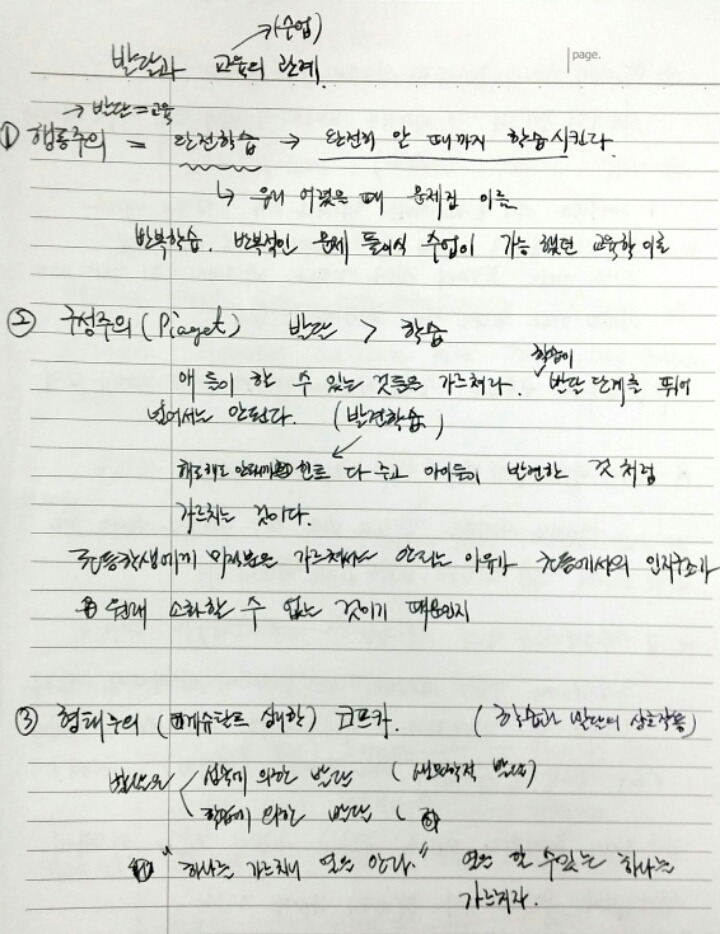 (수업)
발달과 교육의 관계.
page.
→ 발달=교육
① 행동주의 = 완전학습 → 완전히 알 때까지 학습시킨다.
↳ 우리 어렸을 때 문제집 이름
반복학습. 반복적인 문제 풀이식 수업이 가능했던 교육학 이론
② 구성주의 (Piaget) 발달 > 학습
학습이
애들이 할 수 있는 것들은 가르쳐라. 발달 단계를 뛰어
넘어서는 안된다. (발견학습)
힌트 다 주고 아이들이 발견한 것처럼
가르치는 것이다.
초등학생에게 미적분은 가르쳐서는 안되는 이유가 초등에서의 인지구조가
원래 소화할 수 없는 것이기 때문인지
③ 형태주의 (게슈탈트 심리학) 코프카. (학습과 발달의 상호작용)
발달은 성숙에 의한 발달 (생물학적 발달)
학습에 의한 발달 (
"하나를 가르치니 열을 안다." 열을 알 수 있는 하나를
가르치자.